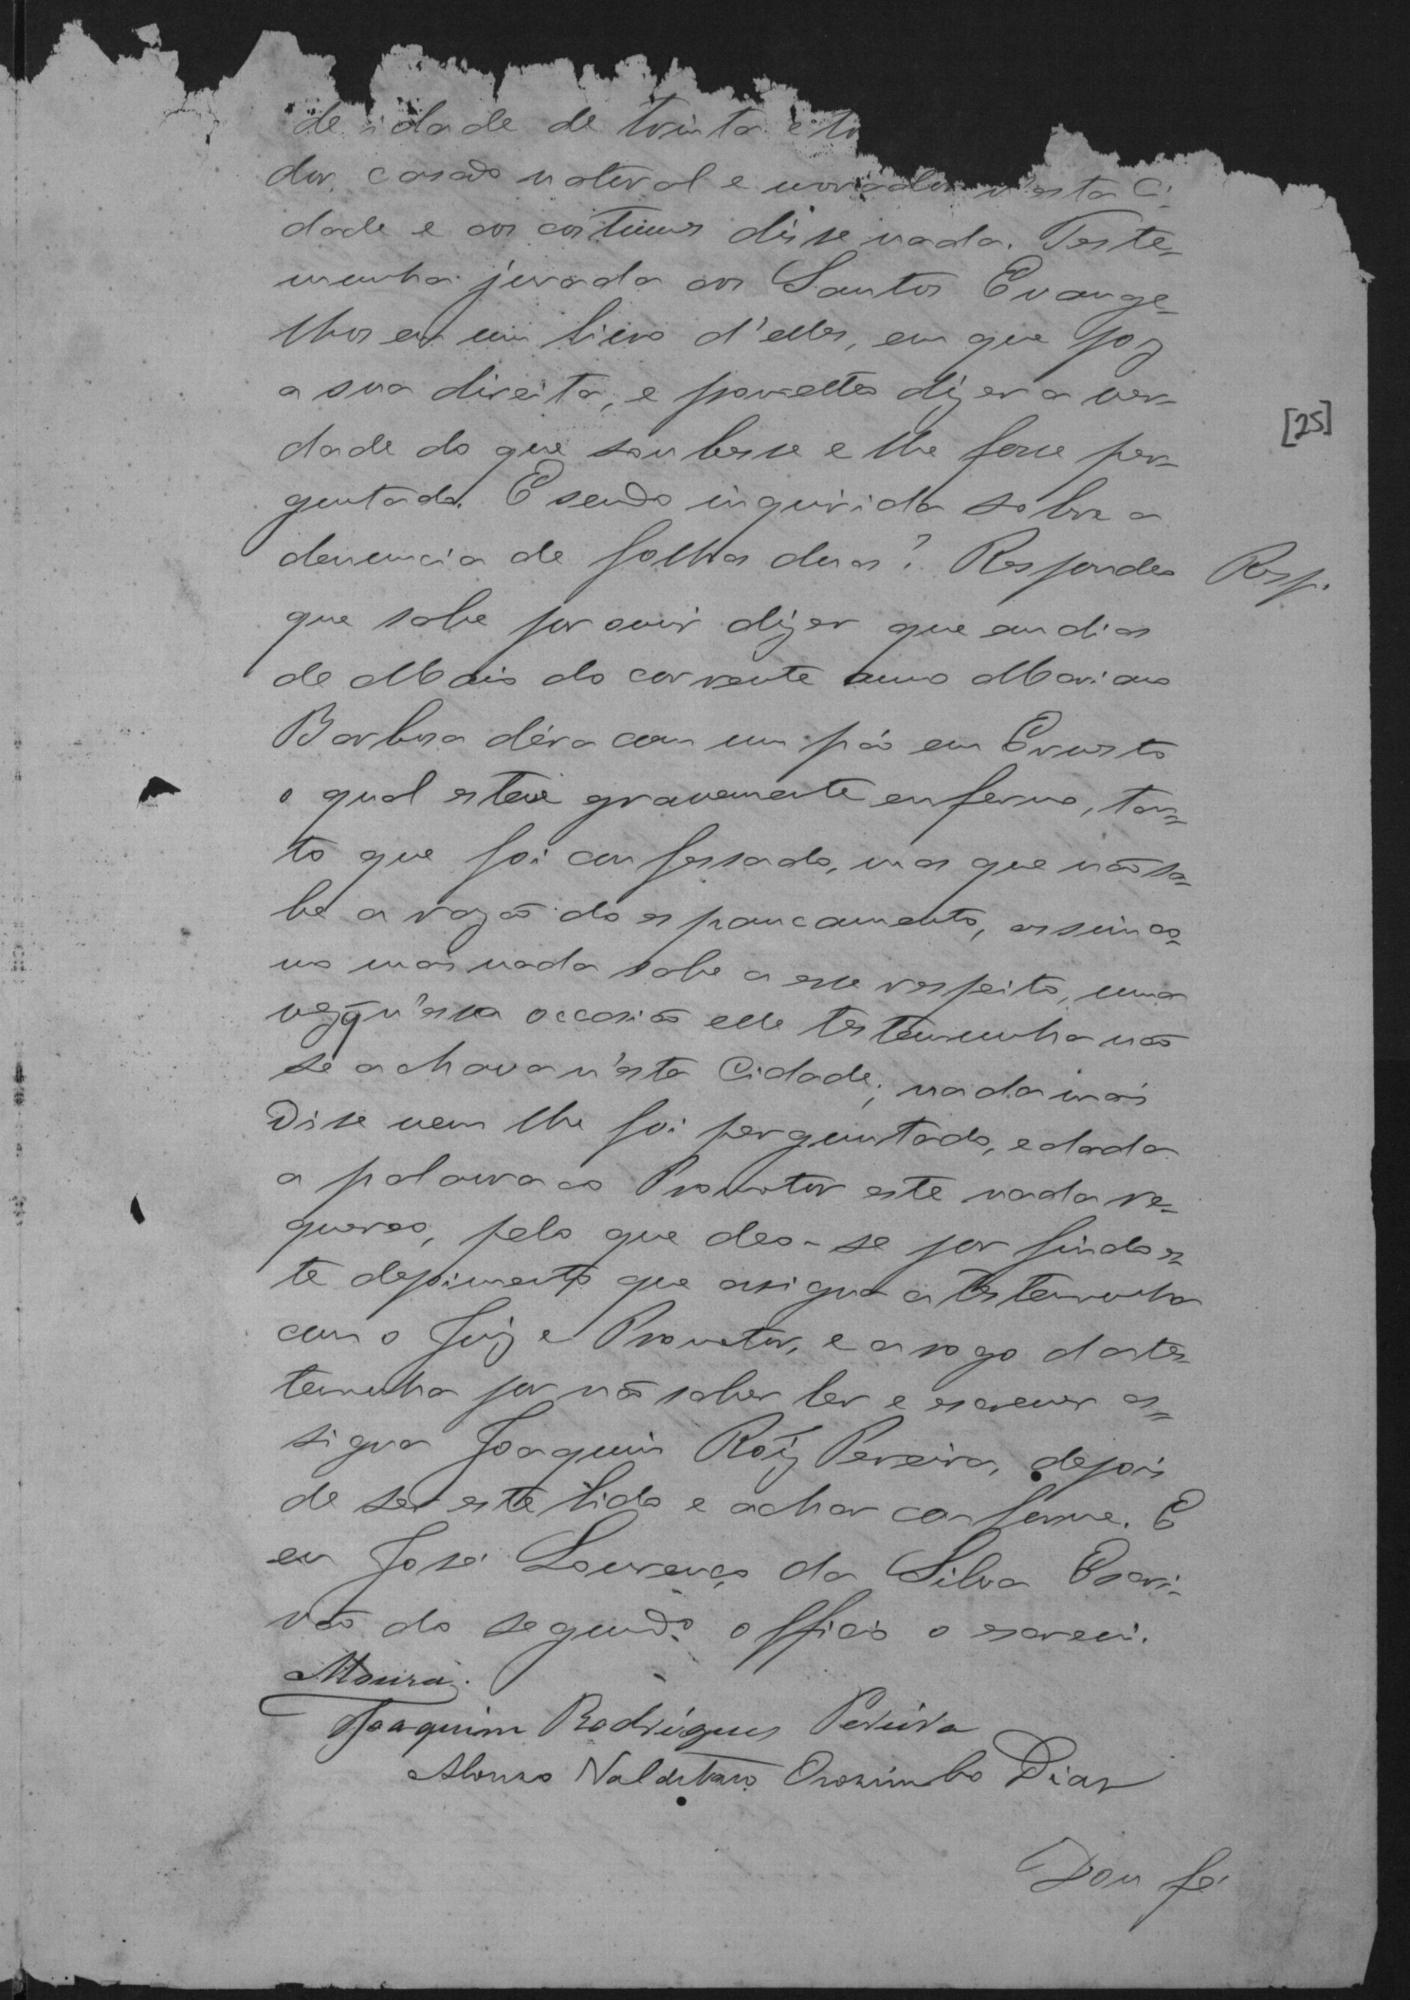 de idade de trinta e
dor, casado natural e morador n'esta Ci-
dade e aos costumes disse nada. Teste-
munha jurada aos Santos Evange-
lhos em um livro d'elles, em que poz
a sua direita, e prometteo dizer a ver-
dade do que soubesse e lhe fosse per-
guntado. E sendo inquirida sobre a
denuncia de folhas duas? Respondeo
Resp.
[25]
que sabe por ouvir dizer que em dias
de Maio do corrente anno Mariano
Barbosa déra com um páo em
o qual esteve gravemente enfermo, tan-
to que foi confessado, mas que não sa-
be a razão do espancamento, assim co-
mo mais nada sabe a esse respeito, uma
vez q' n'essa occasião elle testemunha não
se achava n'esta Cidade; nada mais
Disse nem lhe foi perguntado, e dada
a palavra ao Promotor este nada re-
quereo, pelo que deo-se por findo es-
te depoimento que assigna a testemunha
com o Juiz e Promotor, e a rogo da tes-
temunha por não saber ler e escrever as-
signa Joaquim Roiz Pereira, depois
de ser este lido e achar conforme. E
eu José Lourenço da Silva Escri-
vão do segundo officio o escrevi.
Moura.
Joaquim Rodrigues Pereira
Orozimbo Dias
Dou fé